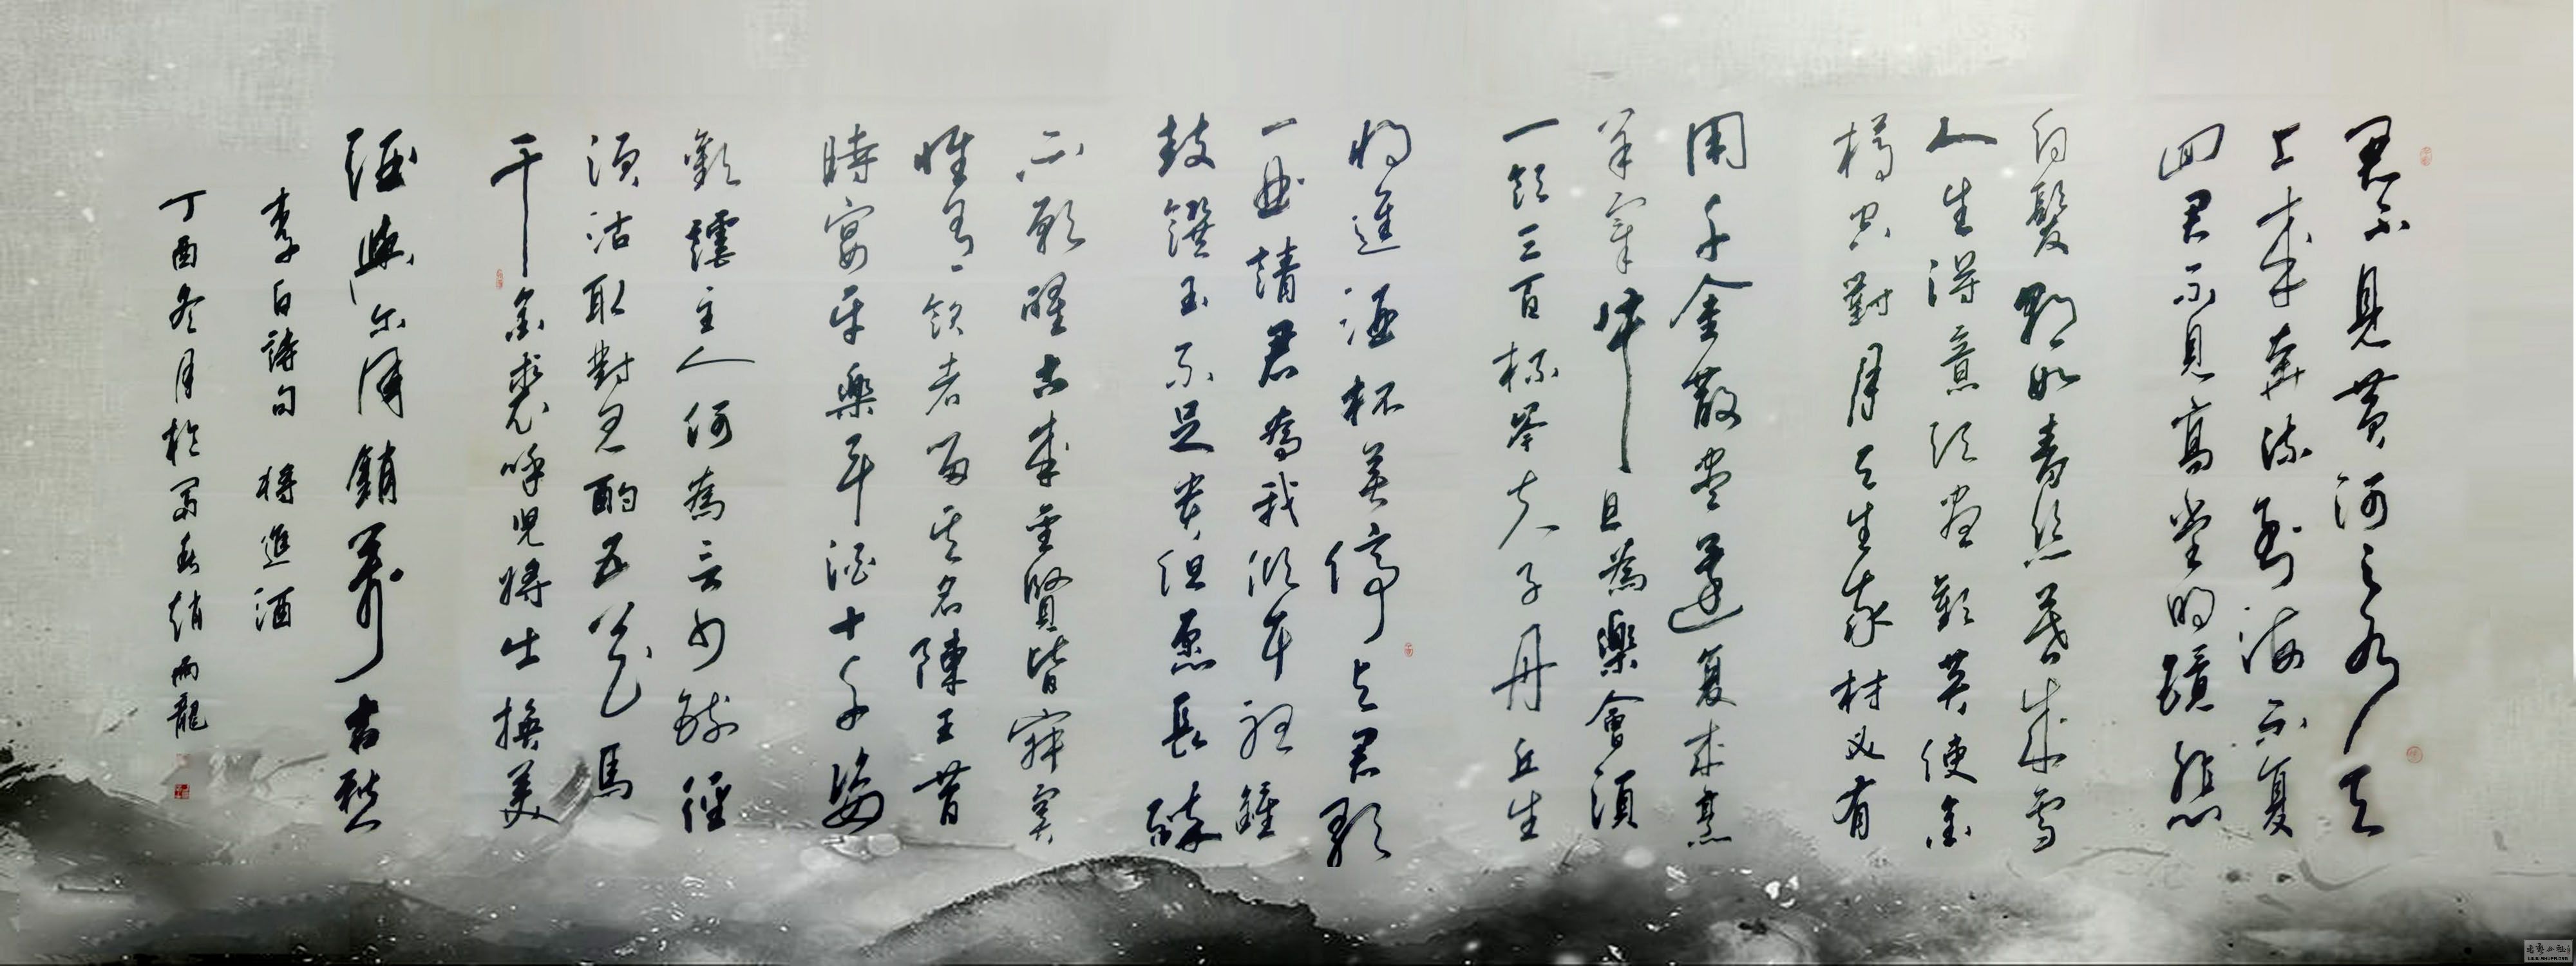 君不見黄河之水天
上来奔流到海不复
回君不見高堂明鏡悲
白髮朝如青丝暮成雪
人生得意須盡歡莫使金
樽空對月天生我材必有
用千金散盡還复来烹
羊宰牛且為樂會須
一飲三百杯岑夫子丹丘生
将進酒杯莫停与君歌
一曲請君為我傾耳聽鐘
鼓饌玉不足貴但愿長醉
不願醒古来聖賢皆寂寞
惟有飲者留其名陳王昔
時宴平樂斗酒十千恣
歡謔主人何為言少錢徑
須沽取對君酌五花馬
千金裘呼兒將出換美
酒與尔同銷萬古愁
李白詩句 將進酒
丁酉冬月於
WWW.SHUFR.ORG